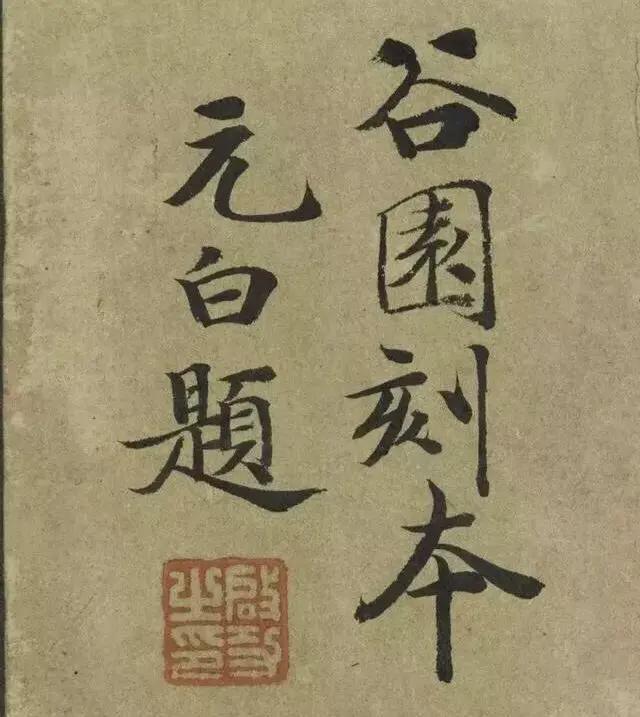 谷園刻本
元白題
啟功之印